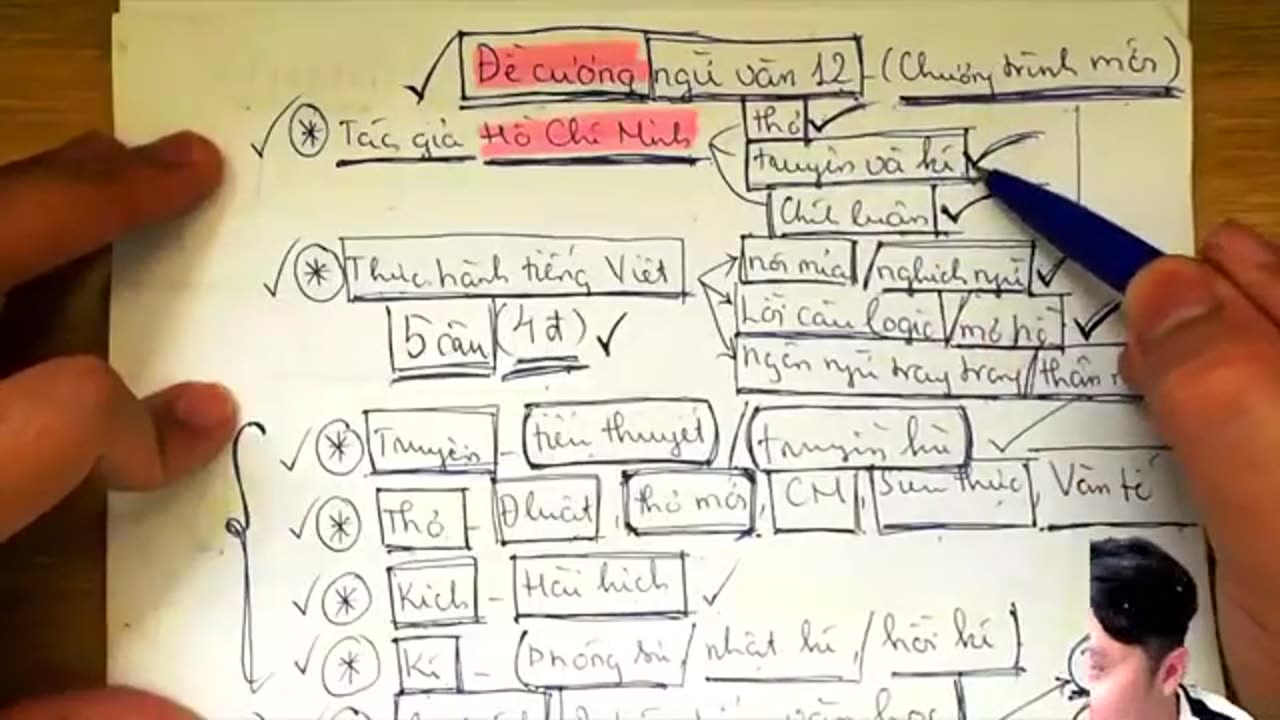 Đề cương ngữ văn 12 - (Chương trình mới)
* Tác giả Hồ Chí Minh
thơ
truyện và kí
Chính luận
* Thực hành tiếng Việt
nói mỉa / nghịch ngữ
5 câu (4đ)
Lỗi câu logic / mơ hồ
ngôn ngữ trang trọng / thân
* Truyện - (tiểu thuyết) / (truyện kí)
* Thơ - Đ luật, thơ mới, CM, Siêu thực, Văn tế
* Kịch - Hài kịch
* Kí - (phóng sự / nhật kí / hồi kí)
văn học